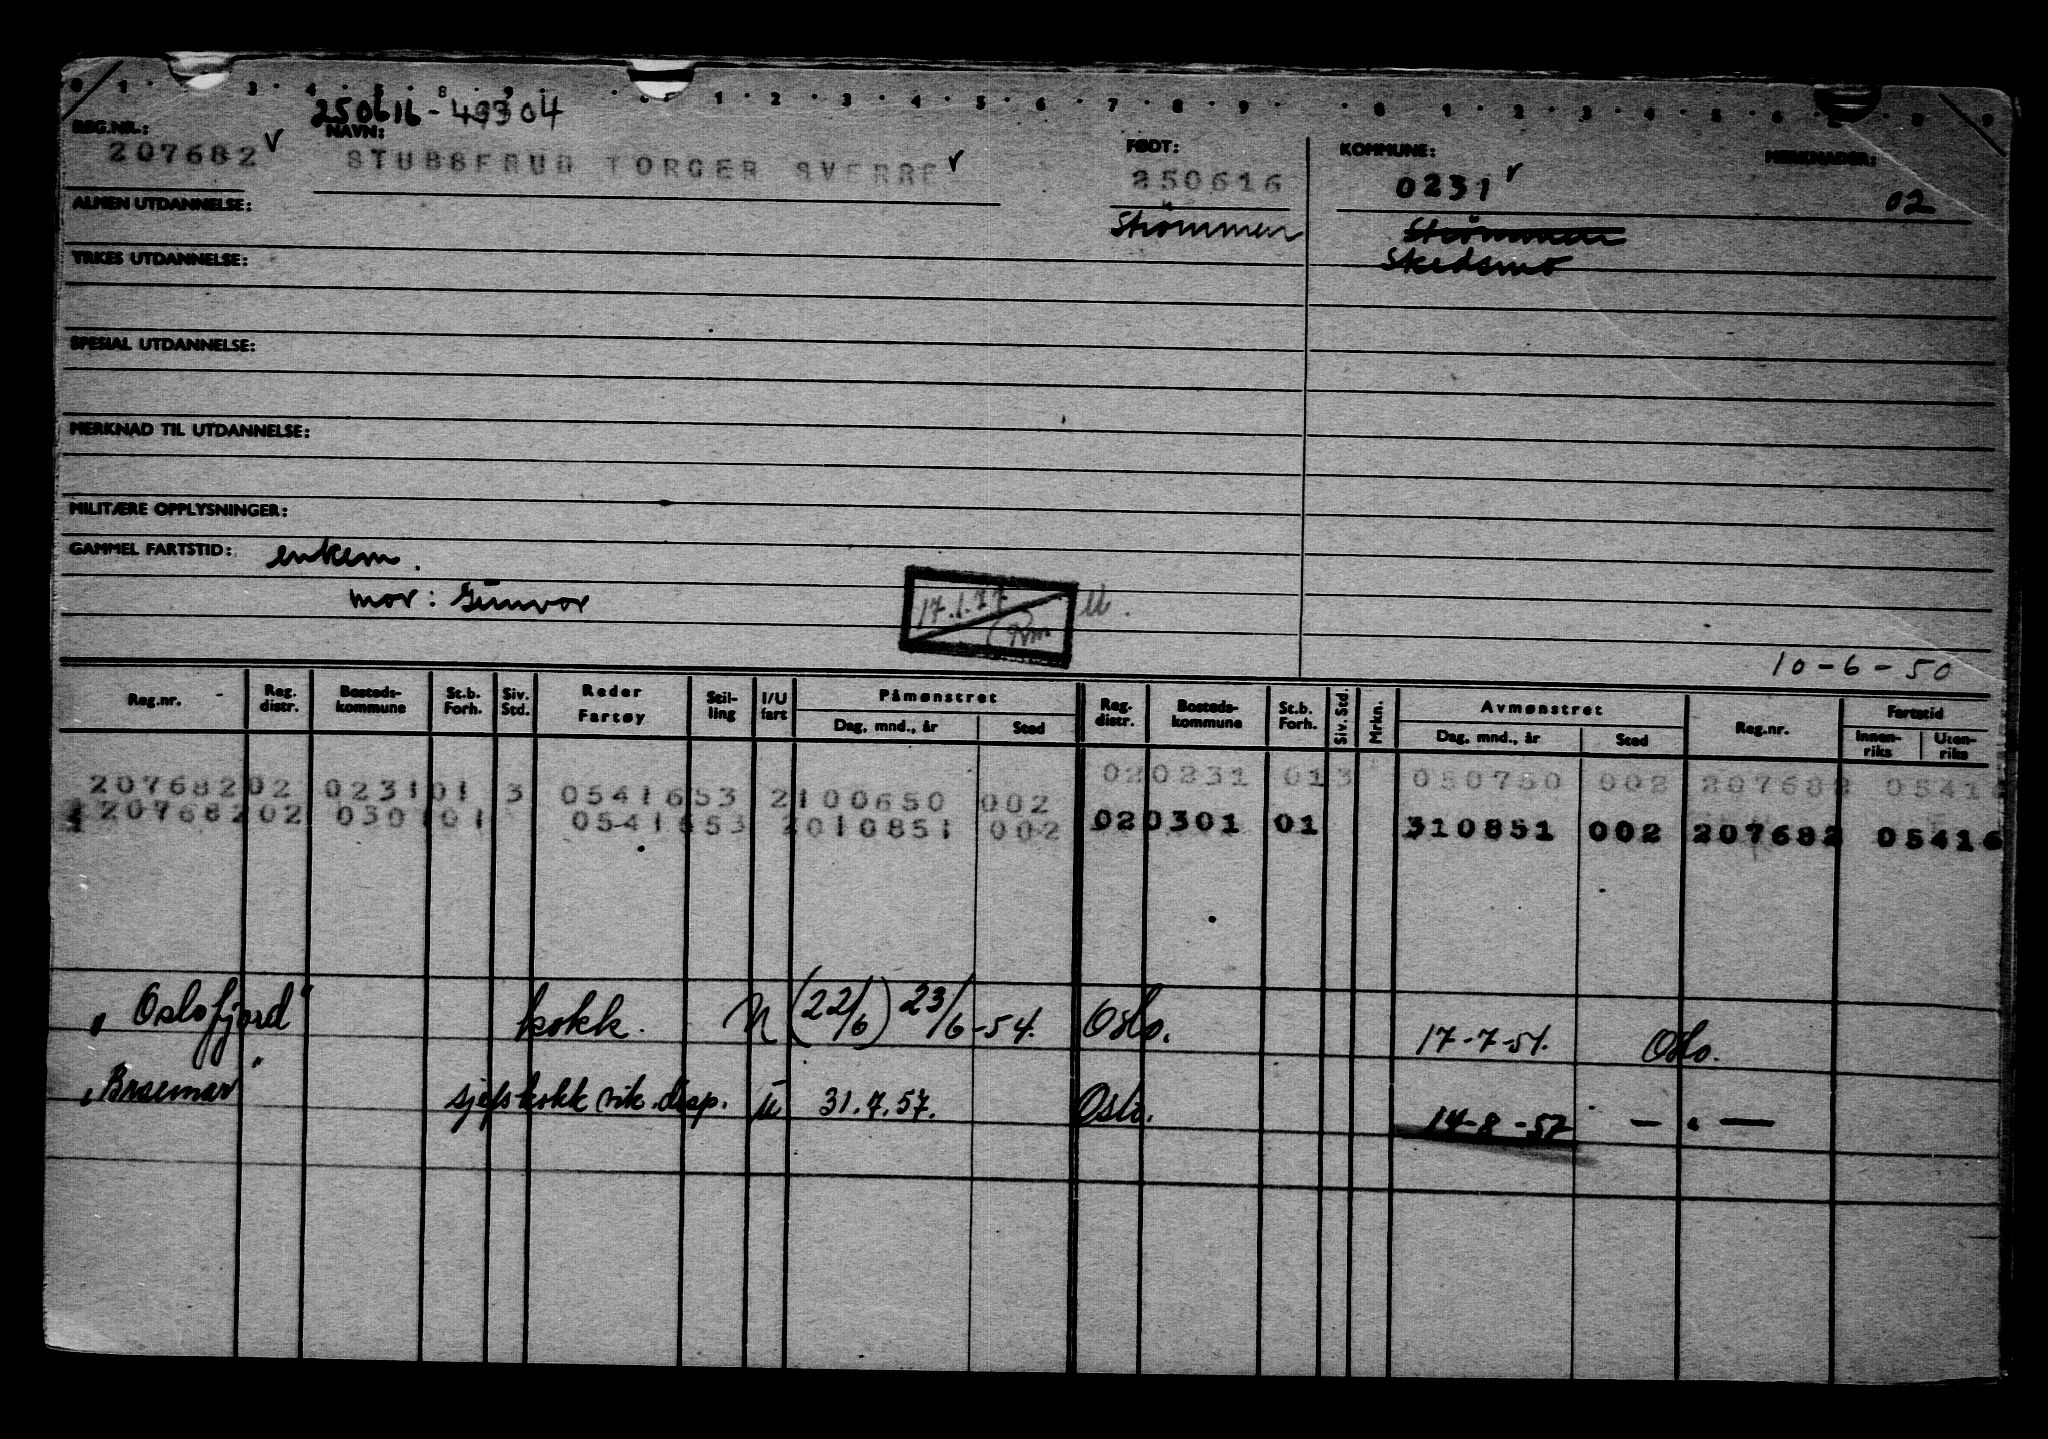 0 1 · 3 · 4 · 5 · 8 9 · 1 · 2 · 3 · 4 · 5 · 6 · 7 · 8 · 9 · 0 1 · 2 · 3 · 4 · 5 · 6 · 8 · 9
250616-49304
REG.NR.: NAVN: FØDT: KOMMUNE: MERKNADER:
207682 v STUBBERUD TORGER SVERRE v 250616 0231 v 02
ALMEN UTDANNELSE: Strømmen Strømmen
YRKES UTDANNELSE: Skedsmo
SPESIAL UTDANNELSE:
MERKNAD TIL UTDANNELSE:
MILITÆRE OPPLYSNINGER:
GAMMEL FARTSTID: enkem.
mor: Gunvor
17.1.77 U.
10-6-50
Reg.nr. Reg. distr. Bosteds-kommune St.b. Forh. Siv. Std. Reder Fartøy Stil-ling I/U fart Påmønstret Dag, mnd., år Sted Reg. distr. Bosteds-kommune St.b. Forh. Siv. Std. Mrkn. Avmønstret Dag, mnd., år Sted Reg.nr. Fartstid Innen-riks Uten-riks
207682 02 0231 01 3 05416 53 2 100650 002 02 0231 01 3 050750 002 207682 05416
207682 02 0301 01 05416 53 2 010851 002 02 0301 01 310851 002 207682 05416
"Oslofjord" kokk. U (22/6) 23/6-54. Oslo. 17-7-54. Oslo.
"Braemar" sjefskokk e/k. disp. U 31.7.57. Oslo. 14-8-57 — „ —